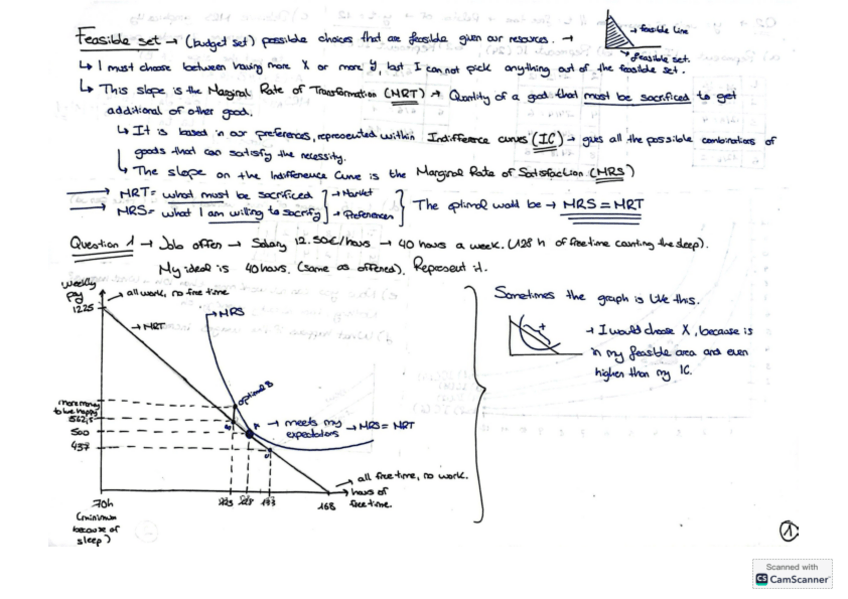 Feasible set → (budget set) possible choices that are feasible given our resources. →
→ feasible line
→ feasible set.
↳ I must choose between having more X or more Y, but I can not pick anything out of the feasible set.
↳ This slope is the Marginal Rate of Transformation (MRT) → Quantity of a good that must be sacrificed to get
additional of other good.
↳ It is based in our preferences, represented within Indifference curves (IC) → gives all the possible combinations of
goods that can satisfy the necessity.
↳ The slope on the Indifference Curve is the Marginal Rate of Satisfaction (MRS)
→ MRT = what must be sacrificed → Market
→ MRS = what I am willing to sacrify → Preferences
The optimal would be → MRS = MRT
Question 1 → Job offer → Salary 12.50€/hours → 40 hours a week. (128 h of free time counting the sleep).
My ideal is 40 hours. (same as offered). Represent it.
weekly
pay
→ all work, no free time
1225
→ MRT
→ MRS
optimal B
more money
to be happy
562,5
500
437
A → meets my → MRS = MRT
expectations
→ all free time, no work.
→ hours of
free time.
70h
(minimum
because of
sleep)
123 128 133
168
Sometimes the graph is like this.
→ I would choose X, because is
in my feasible area and even
higher than my IC.
1
Scanned with
CS CamScanner